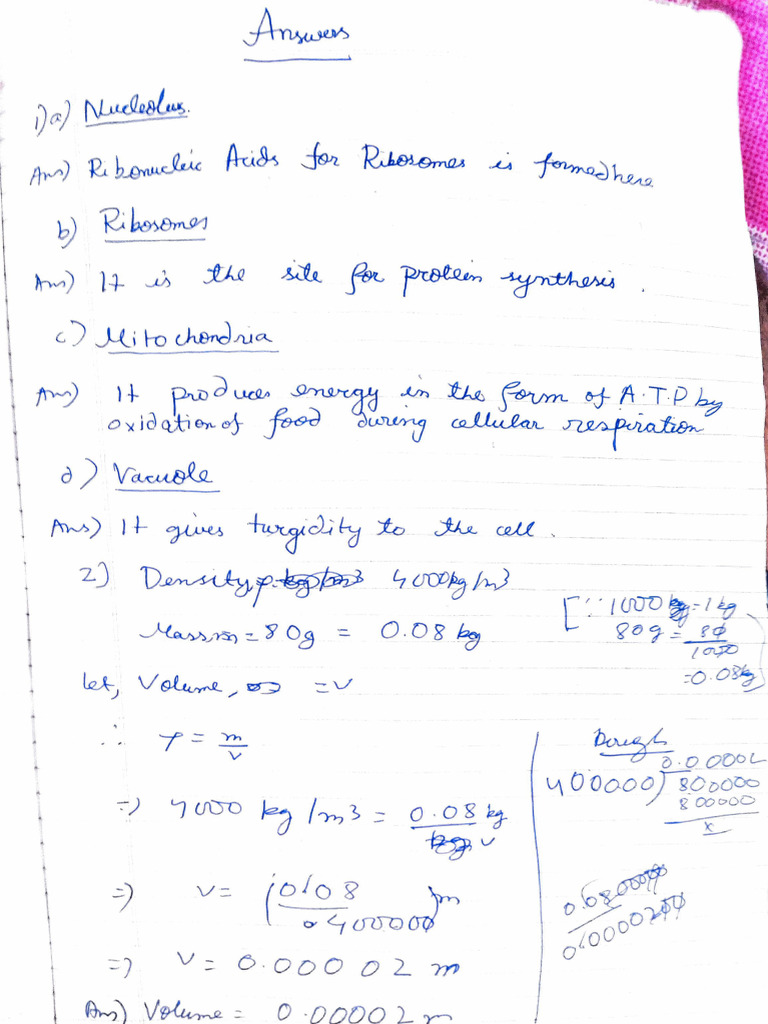 Answers
1)a) Nucleolus.
Ans) Ribonucleic Acids for Ribosomes is formed here.
b) Ribosomes
Ans) It is the site for protein synthesis.
c) Mitochondria
Ans) It produces energy in the form of A.T.P by
oxidation of food during cellular respiration
d) Vacuole
Ans) It gives turgidity to the cell.
2) Density, ρ 4000kg/m3
Mass, m = 80g = 0.08 kg
[∵ 1000 g = 1 kg
80g = 80/1000
= 0.08kg]
let, Volume, = v
∴ ρ = m/v
=> 4000 kg/m3 = 0.08 kg / v
=> v = (0108/0400000) m
=> v = 0.00002 m
Ans) Volume = 0.00002 m
Rough
0.00002
400000) 800000
800000
x